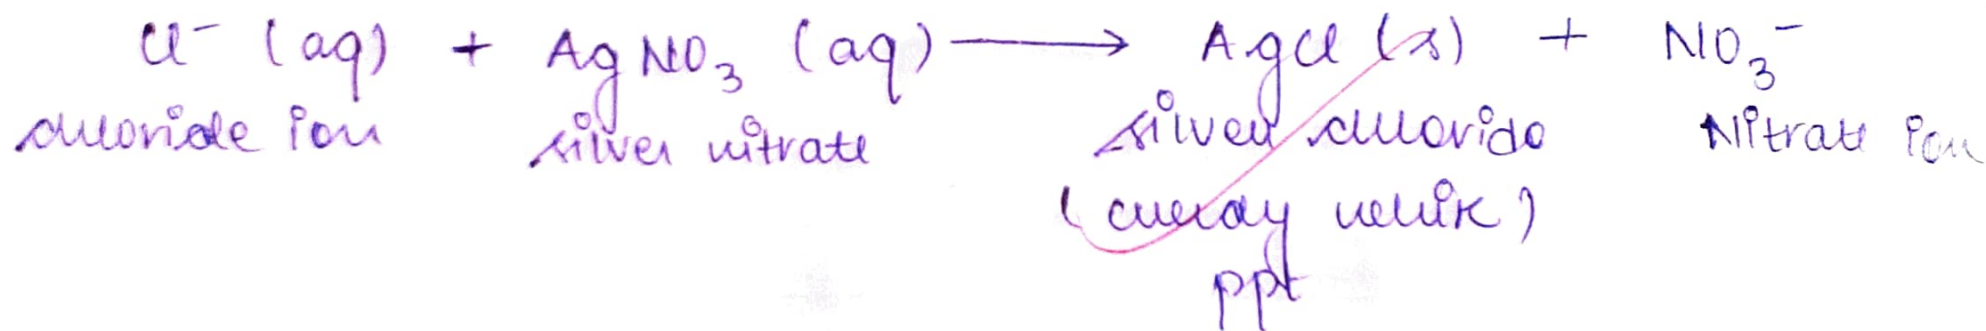 Cl⁻ (aq) + AgNO₃ (aq) ⟶ AgCl (s) + NO₃⁻
chloride ion silver nitrate silver chloride Nitrate ion
(curdy white)
ppt